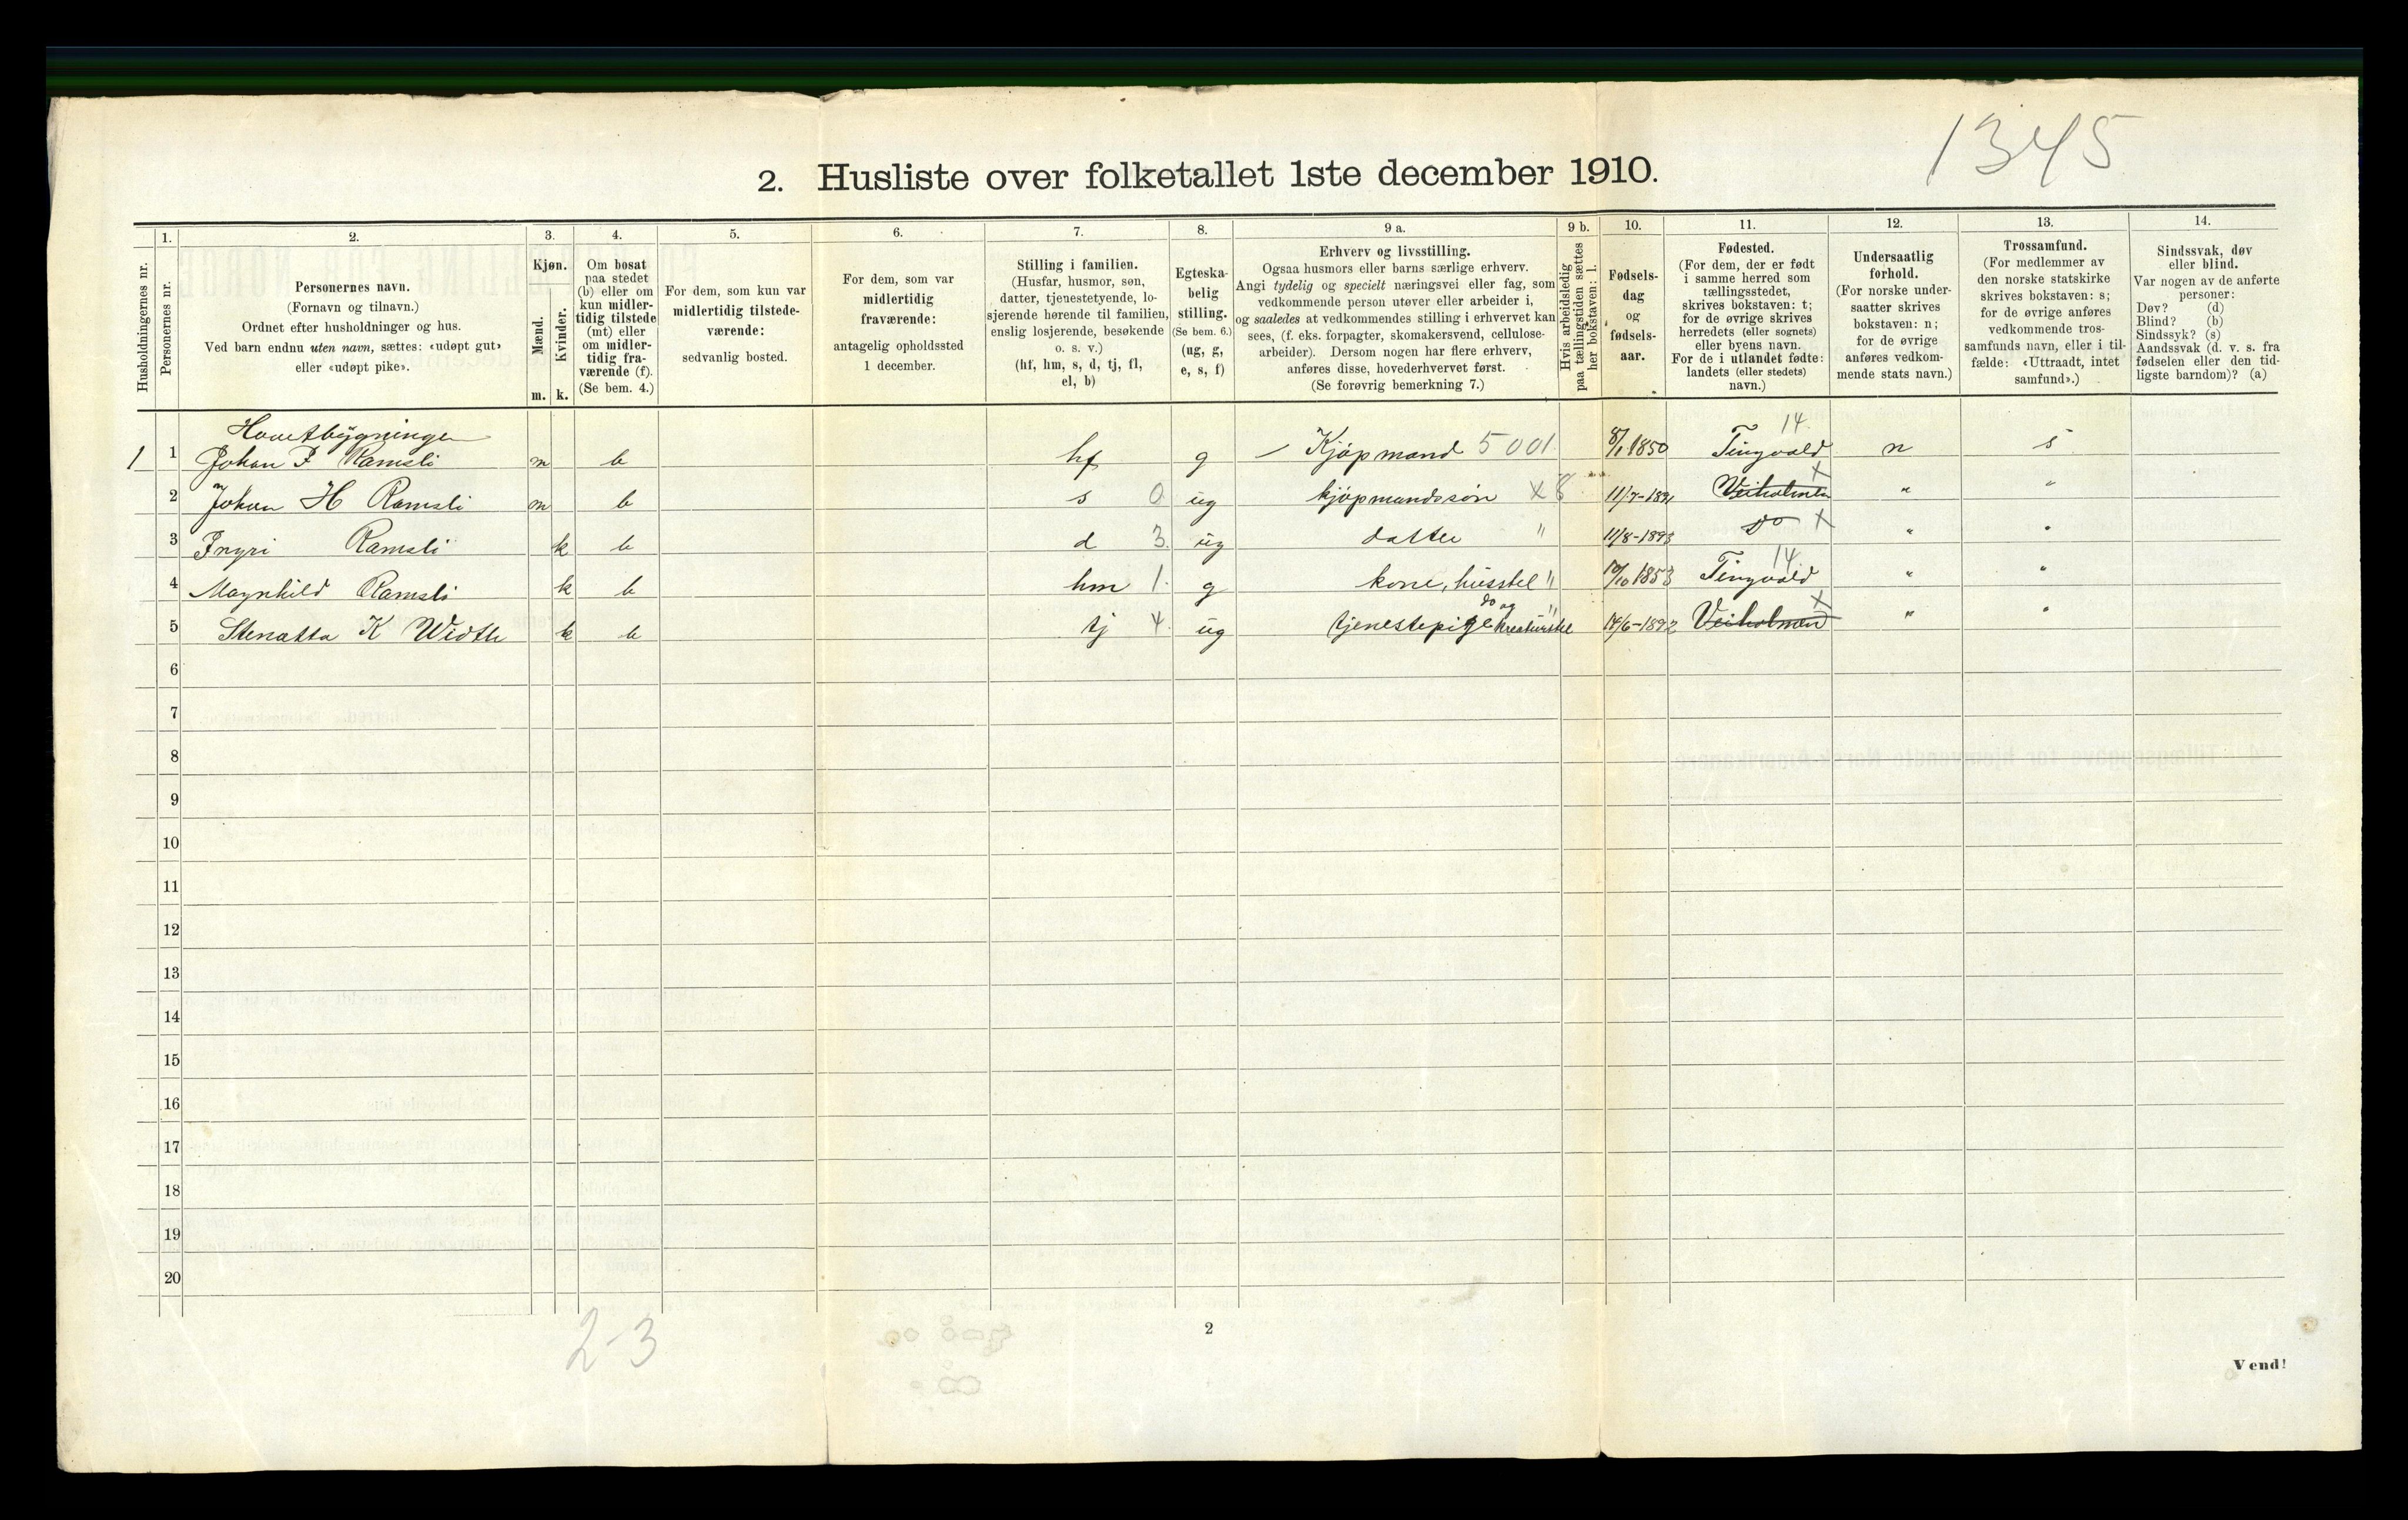 1345
2. Husliste over folketallet 1ste december 1910.
Husholdningernes nr.
1.
Personernes nr.
2.
Personernes navn.
(Fornavn og tilnavn.)
Ordnet efter husholdninger og hus.
Ved barn endnu uten navn, sættes: «udøpt gut»
eller «udøpt pike».
3.
Kjøn.
Mænd.
Kvinder.
m. k.
4.
Om bosat
paa stedet
(b) eller om
kun midler-
tidig tilstede
(mt) eller
om midler-
tidig fra-
værende (f).
(Se bem. 4.)
5.
For dem, som kun var
midlertidig tilstede-
værende:
sedvanlig bosted.
6.
For dem, som var
midlertidig
fraværende:
antagelig opholdssted
1 december.
7.
Stilling i familien.
(Husfar, husmor, søn,
datter, tjenestetyende, lo-
sjerende hørende til familien,
enslig losjerende, besøkende
o. s. v.)
(hf, hm, s, d, tj, fl,
el, b)
8.
Egteska-
belig
stilling.
(Se bem. 6.)
(ug, g,
e, s, f)
9 a.
Erhverv og livsstilling.
Ogsaa husmors eller barns særlige erhverv.
Angi tydelig og specielt næringsvei eller fag, som
vedkommende person utøver eller arbeider i,
og saaledes at vedkommendes stilling i erhvervet kan
sees, (f. eks. forpagter, skomakersvend, cellulose-
arbeider). Dersom nogen har flere erhverv,
anføres disse, hovederhvervet først.
(Se forøvrig bemerkning 7.)
9 b.
Hvis arbeidsledig
paa tællingstiden sættes
her bokstaven: l.
10.
Fødsels-
dag
og
fødsels-
aar.
11.
Fødested.
(For dem, der er født
i samme herred som
tællingsstedet,
skrives bokstaven: t;
for de øvrige skrives
herredets (eller sognets)
eller byens navn.
For de i utlandet fødte:
landets (eller stedets)
navn.)
12.
Undersaatlig
forhold.
(For norske under-
saatter skrives
bokstaven: n;
for de øvrige
anføres vedkom-
mende stats navn.)
13.
Trossamfund.
(For medlemmer av
den norske statskirke
skrives bokstaven: s;
for de øvrige anføres
vedkommende tros-
samfunds navn, eller i til-
fælde: «Uttraadt, intet
samfund».)
14.
Sindssvak, døv
eller blind.
Var nogen av de anførte
personer:
Døv? (d)
Blind? (b)
Sindssyk? (s)
Aandssvak (d. v. s. fra
fødselen eller den tid-
ligste barndom)? (a)
14.
1 1 Johan P Ramsli m b hf g – Kjøpmand 5001. 8/1 1850 Tingvold n s
2 Johan H Ramsli m b s 0 ug kjøpmandssøn x 8 11/7-1891 Veiholmen x " "
3 Ingri Ramsli k b d 3. ug datter " 11/8-1893 Do x " "
14.
4 Magnhild Ramsli k b hm 1. g kone, husstel " 10/10 1853 Tingvold " "
do og " x
5 Stenatta K k b tj 4. ug tjenestepige kreaturstel 14/6-1892 Veiholmen " "
6
7
8
9
10
11
12
13
14
15
16
17
18
19
20
2-3
2
Vend!